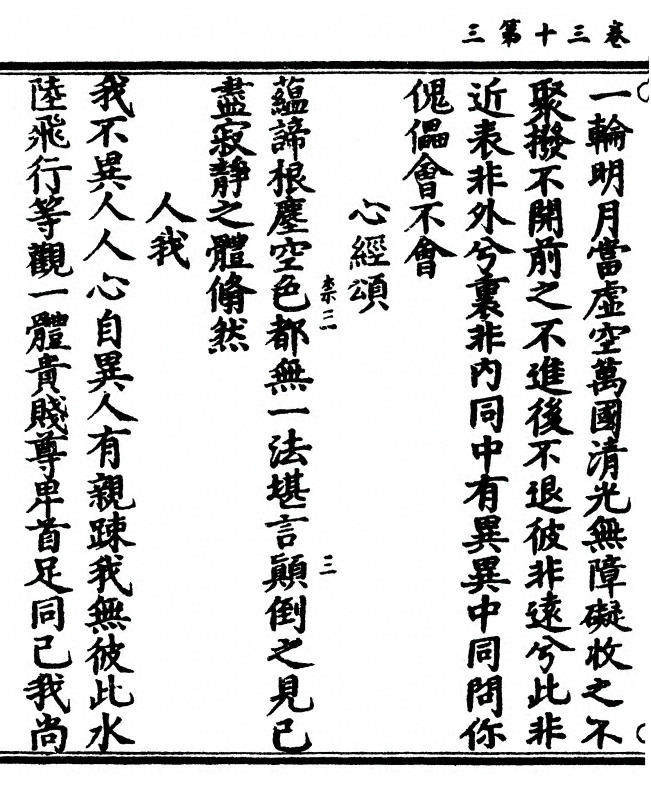 卷三十第三
一輪明月當虛空萬國清光無障礙收之不
聚撥不開前之不進後不退彼非遠兮此非
近表非外兮裏非内同中有異異中同問你
傀儡會不會
心經頌
蘊諦根塵空色都無一法堪言顛倒之見已
盡寂靜之體翛然
人我
我不異人人心自異人有親踈我無彼此水
陸飛行等觀一體貴賤尊卑首足同己我尚
三